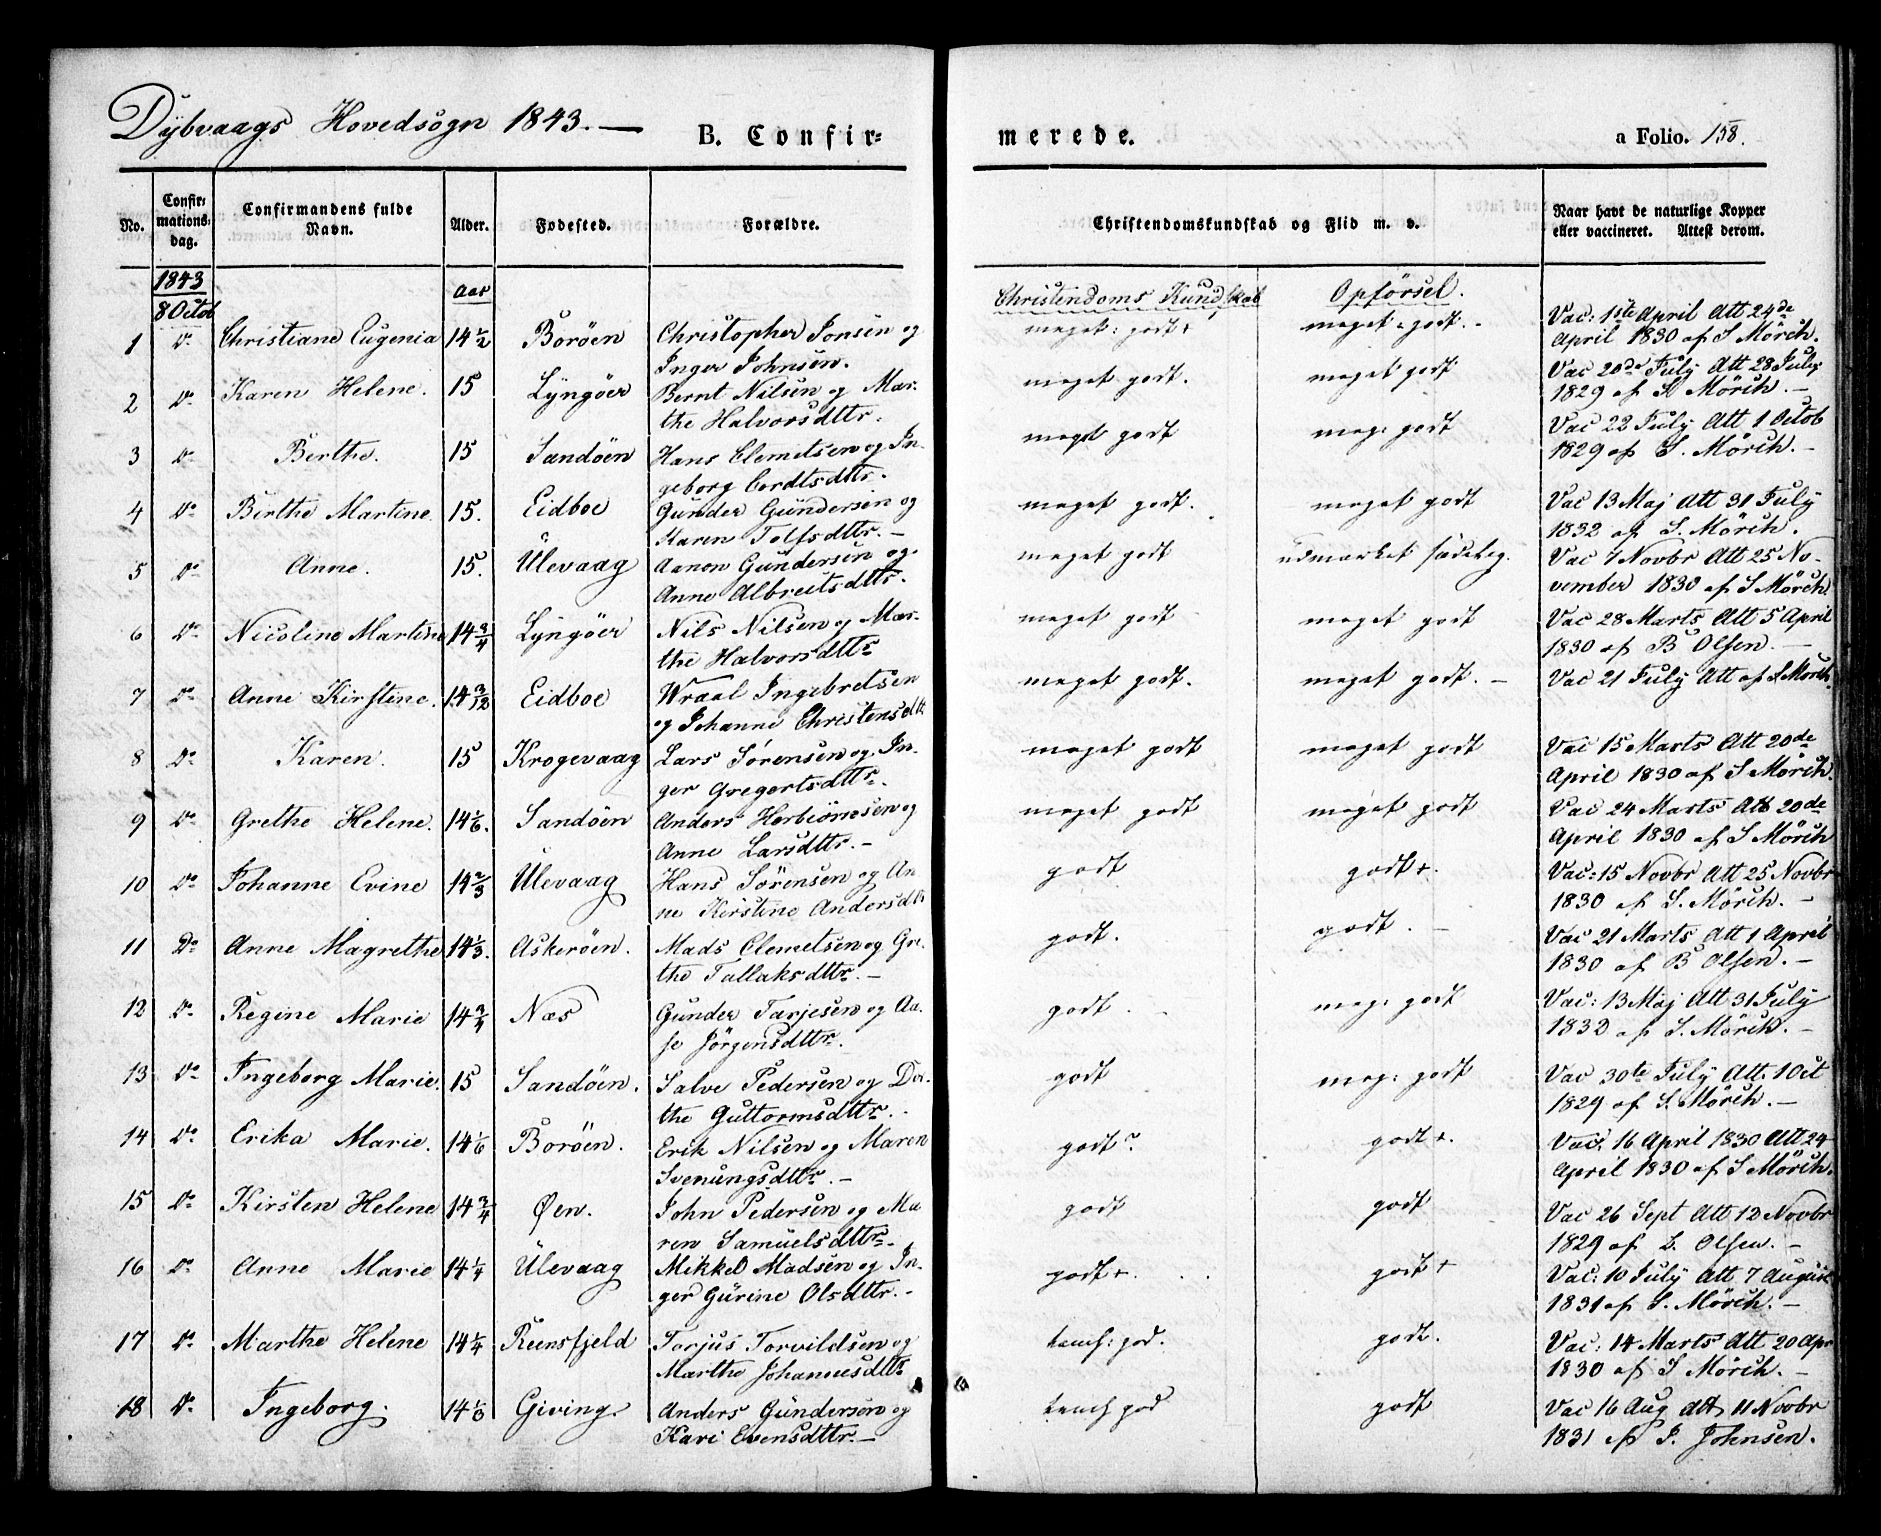 Dybvaags Hovedsogn 1843. —
B. Confir-
merede.
a Folio. 158.
No.
Confir-
mations-
dag.
Confirmandens fulde
Navn.
Alder.
Fødested.
Forældre.
Christendomskundskab og Flid m. v.
Naar havt de naturlige Kopper
eller vaccineret. Attest derom.
1843
8 Octob
Aar
Christendoms Kundskab
Opførsel.
1 Do Christiane Eugenia 14½ Borøen Christopher Jonsen og
Inger Johnsen.
meget: godt + meget godt. - Vac: 1ste April Att 24de
April 1830 af S Mörch.
2 Do Karen Helene. 15 Lyngöer Bernt Nilsen og Mar-
the Halvorsdttr.
meget godt. meget godt Vac 20de July Att 28 July
1829 af S Mörch. -
3 Do Berthe. 15 Sandöen Hans Clemetsen og In-
geborg Cordtsdttr.
meget godt meg: godt Vac 22 July Att 1 Octob
1829 af S. Mörch. -
4 Do Birthe Martine. 15. Eidboe Gunder Gundersen og
Karen Tolfsdttr. -
meget godt. meget godt Vac 13 Maj Att 31 July
1832 af S. Mörch.
5 Do Anne. 15. Ulevaag Aanon Gundersen og
Anne Albreitsdttr.
meget godt udmærket sædelig. Vac 7 Novbr Att 25 No-
vember 1830 af S Mörch
6 Do Nicoline Martine 14¾ Lyngöer Nils Nilsen og Mar-
the Halvorsdttr
meget godt meget godt Vac 28 Marts Att 5 April
1830 af B Olsen. -
7 Do Anne Kirstine. 14 3/12 Eidboe Wraal Ingebretsen
og Johanne Christensdtt
meget godt. meget godt. - Vac 21 July Att af S Mörch.
8 Do Karen. 15 Krogevaag Lars Sørensen og In-
ger Gregertsdttr.
meget godt meget godt Vac 15 Marts Att 20de
April 1830 af S Mörch.
9 Do Grethe Helene. 14⅙. Sandöen Anders Herbiörnsen og
Anne Larsdttr. -
meget godt meget godt Vac 24 Marts Att 20de
April 1830 af S Mörch
10 Do Johanne Evine 14⅔ Ulevaag Hans Sörensen og An
ne Kirstine Andersdtt
godt godt +. Vac: 15 Novbr Att 25 Novbr
1830 af S. Mörch. -
11 Do Anne Magrethe 14⅓. Askeröen. Mads Clemetsen og Gre-
the Tallaksdttr. -
godt. godt. - Vac 21 Marts Att 1 April
1830 af B Olsen. -
12 Do Regine Marie 14¾ Næs Gunder Tarjesen og Aa-
se Jörgensdttr.
godt. meg: godt Vac: 13 Maj Att 31 July
1832 af S. Mörch. -
13 Do Ingeborg Marie. 15 Sandöen. Salve Pedersen og Dor-
the Guttormsdttr. -
godt meg: godt Vac 30te July Att: 1 Oct
1829 af S. Mörch. -
14 Do Erika Marie. 14⅙ Boröen. Erik Nilsen og Maren
Svenungsdttr. -
godt godt +. Vac: 16 April 1830 Att 24
April 1830 af S Mörch.
15 Do Kirsten Helene 14¾ Øen. John Pedersen og Ma-
ren Samuelsdttr.
godt godt Vac 26 Sept Att 12 Novbr
1829 af B. Olsen. -
16 Do Anne Marie 14¼ Ulevaag Mikkel Madsen og In-
ger Gurine Olsdttr. -
godt +. godt + Vac: 10 July Att 7 August
1831 af S. Mörch. -
17 Do Marthe Helene 14¼ Reensfjeld Torjus Torvildsen og
Marthe Johannesdttr
temf: god. godt. Vac: 14 Marts Att 20 Apr
1830 af S Mörch. -
18 Do Ingeborg. 14⅓ Giving. Anders Gundersen og
Kari Evensdttr. -
temf god godt Vac 16 Aug Att 11 Novbr
1831 af J. Johnsen.